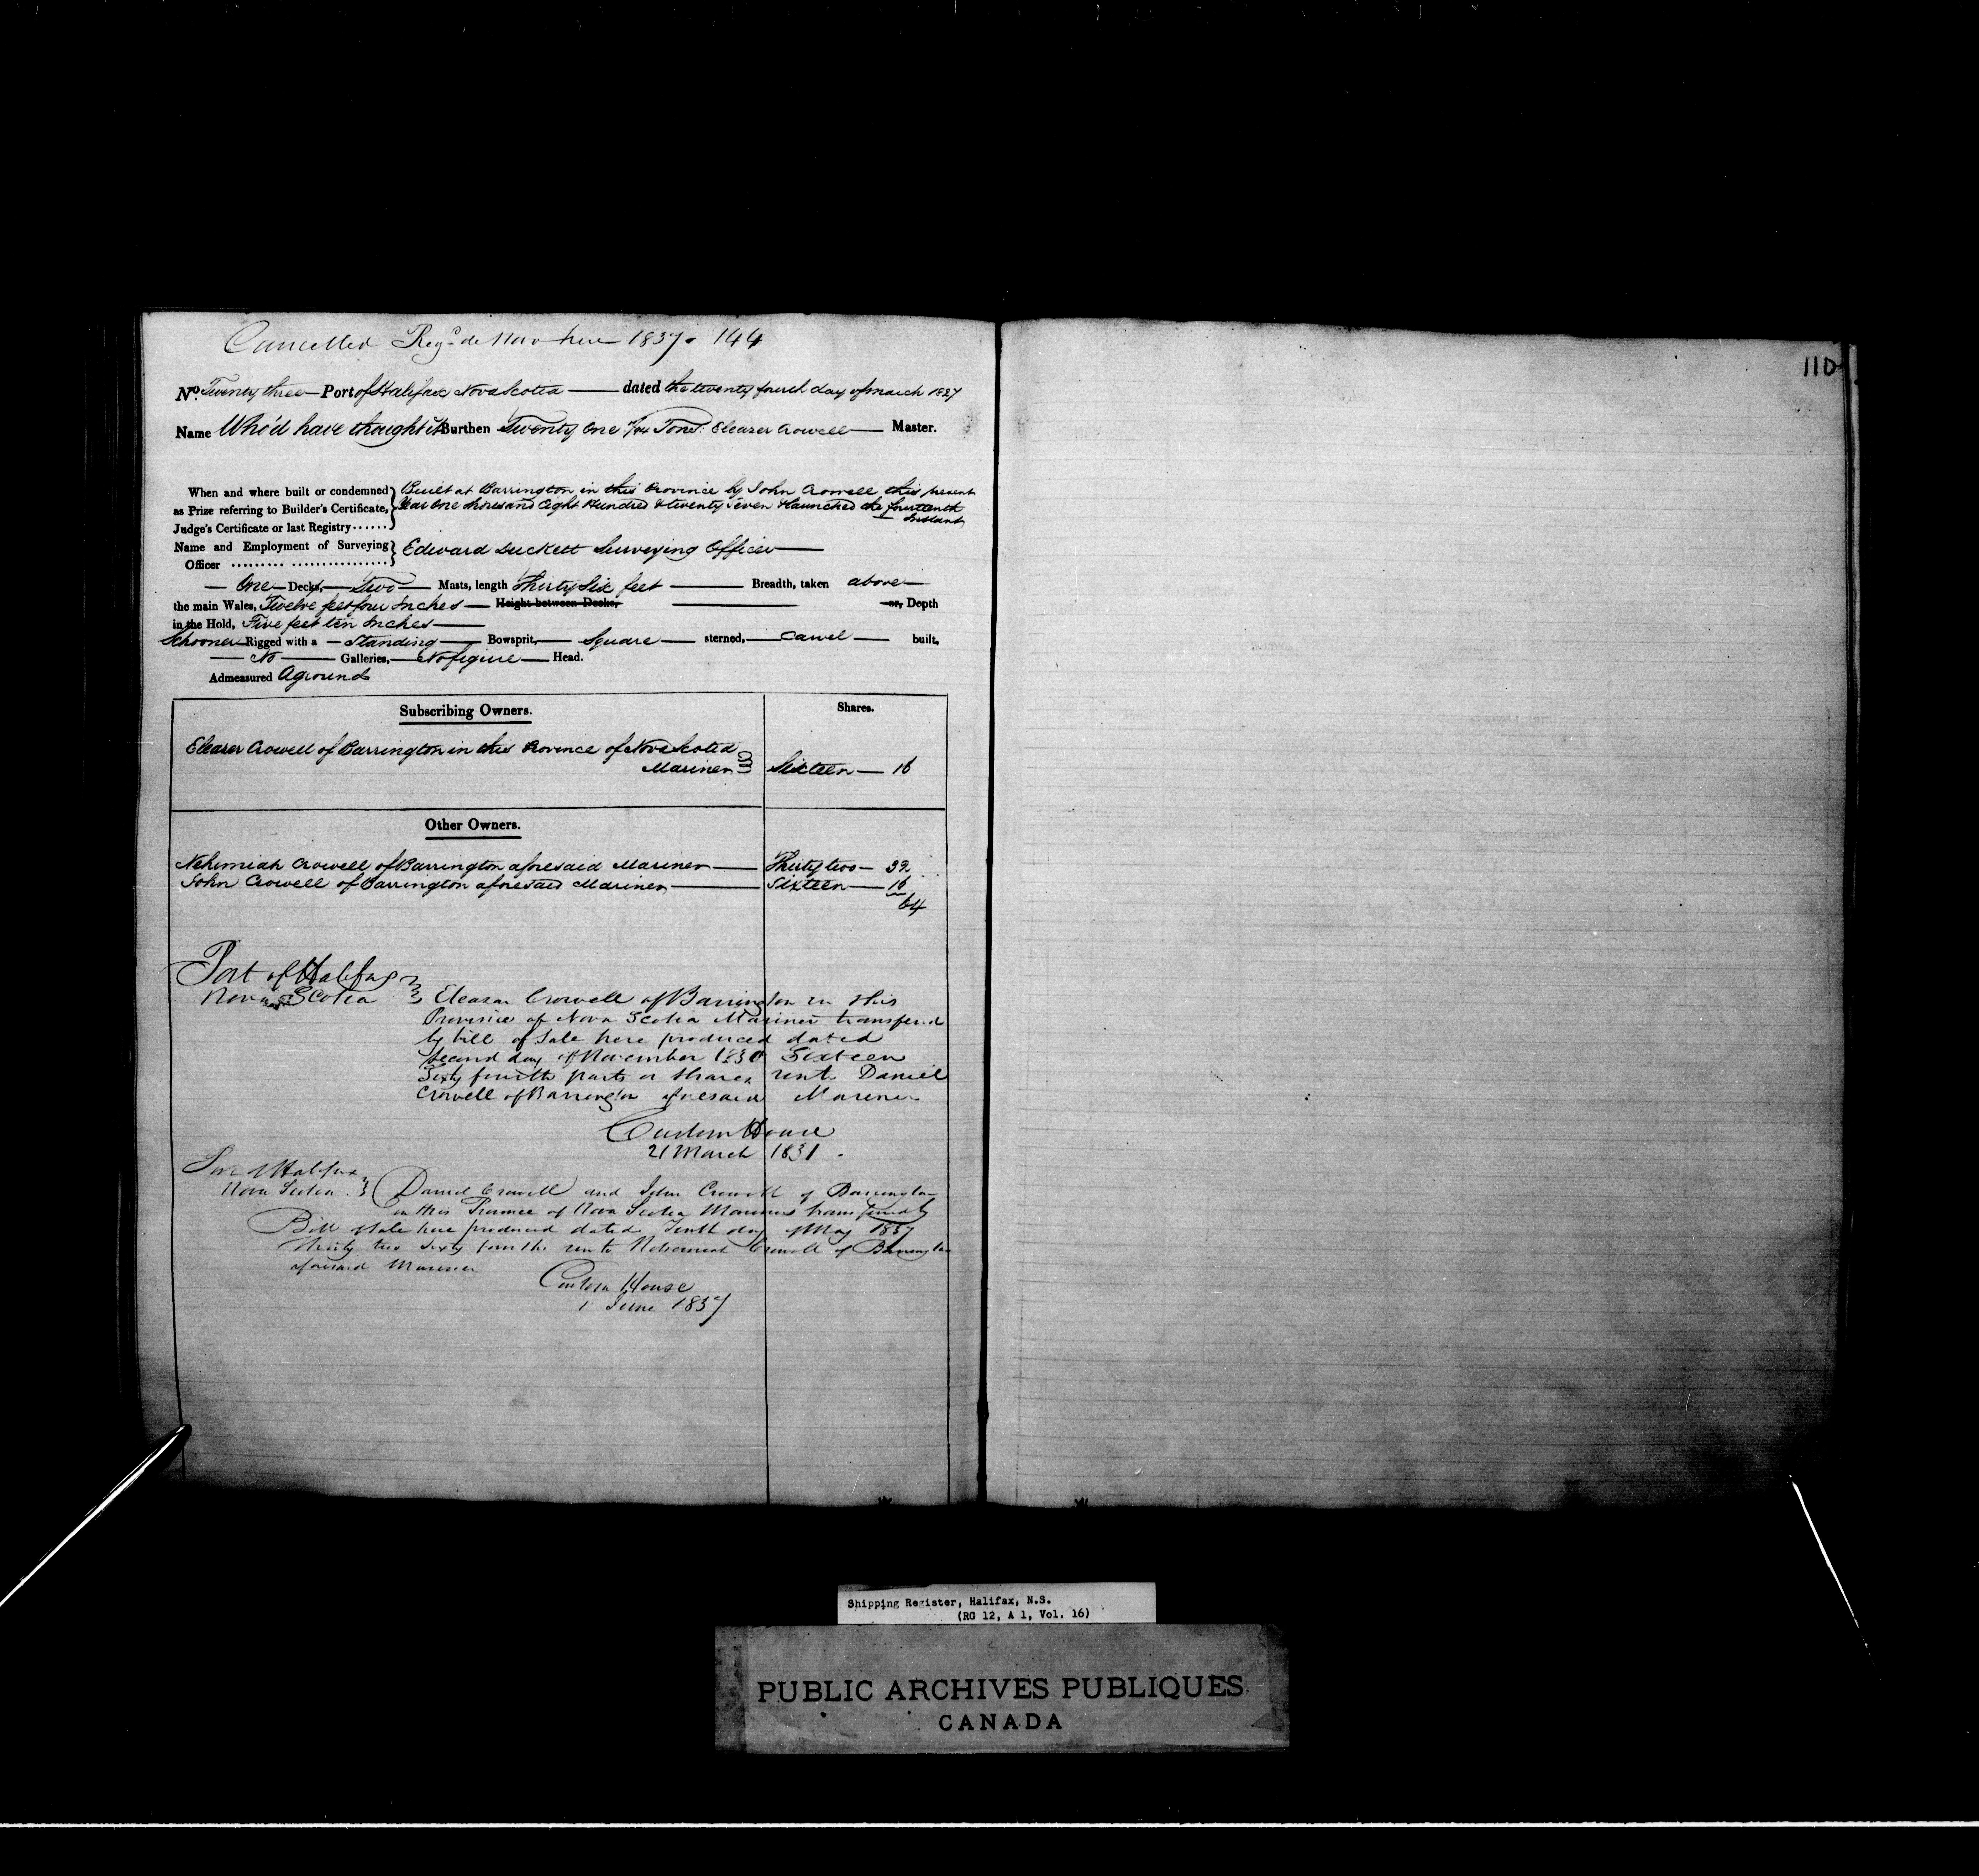 Cancelled Regd de Novo here 1837. 144
110
No. Twenty three Port of Halifax Nova Scotia dated the twenty fourth day of March 1827
Name Who'd have thought it Burthen Twenty One Tons. Eleazer Crowell Master.
When and where built or condemned Built at Barrington in this Province by John Crowell this present
as Prize referring to Builder's Certificate, Year One thousand Eight Hundred & twenty Seven & launched the fourteenth
Judge's Certificate or last Registry...... Instant
Name and Employment of Surveying Edward Duckett Surveying Officer
Officer ......... .................
One Decks, Two Masts, length Thirty Six feet Breadth, taken above
the main Wales, Twelve feet four Inches Height between Decks, or, Depth
in the Hold, Five feet ten Inches
Schooner Rigged with a Standing Bowsprit, Square sterned, Carvel built,
No Galleries, No figure Head.
Admeasured Aground
Subscribing Owners. Shares.
Eleazer Crowell of Barrington in this Province of Nova Scotia
Mariner Sixteen 16
Other Owners.
Nehemiah Crowell of Barrington aforesaid Mariner Thirty two 32
John Crowell of Barrington aforesaid Mariner Sixteen 16
64
Port of Halifax
Nova Scotia Eleazar Crowell of Barrington in this
Province of Nova Scotia Mariner transferred
by bill of Sale here produced dated
Second day of November 1830 Sixteen
Sixty fourth parts or Shares unto Daniel
Crowell of Barrington aforesaid Mariner
Custom House
21 March 1831.
Port of Halifax
Nova Scotia Daniel Crowell and John Crowell of Barrington
in this Province of Nova Scotia Mariners transferred by
Bill of Sale here produced dated Tenth day of May 1837
Thirty two Sixty fourths unto Nehemiah Crowell of Barrington
aforesaid Mariner
Custom House
1 June 1837
Shipping Register, Halifax, N.S.
(RG 12, A 1, Vol. 16)
PUBLIC ARCHIVES PUBLIQUES
CANADA